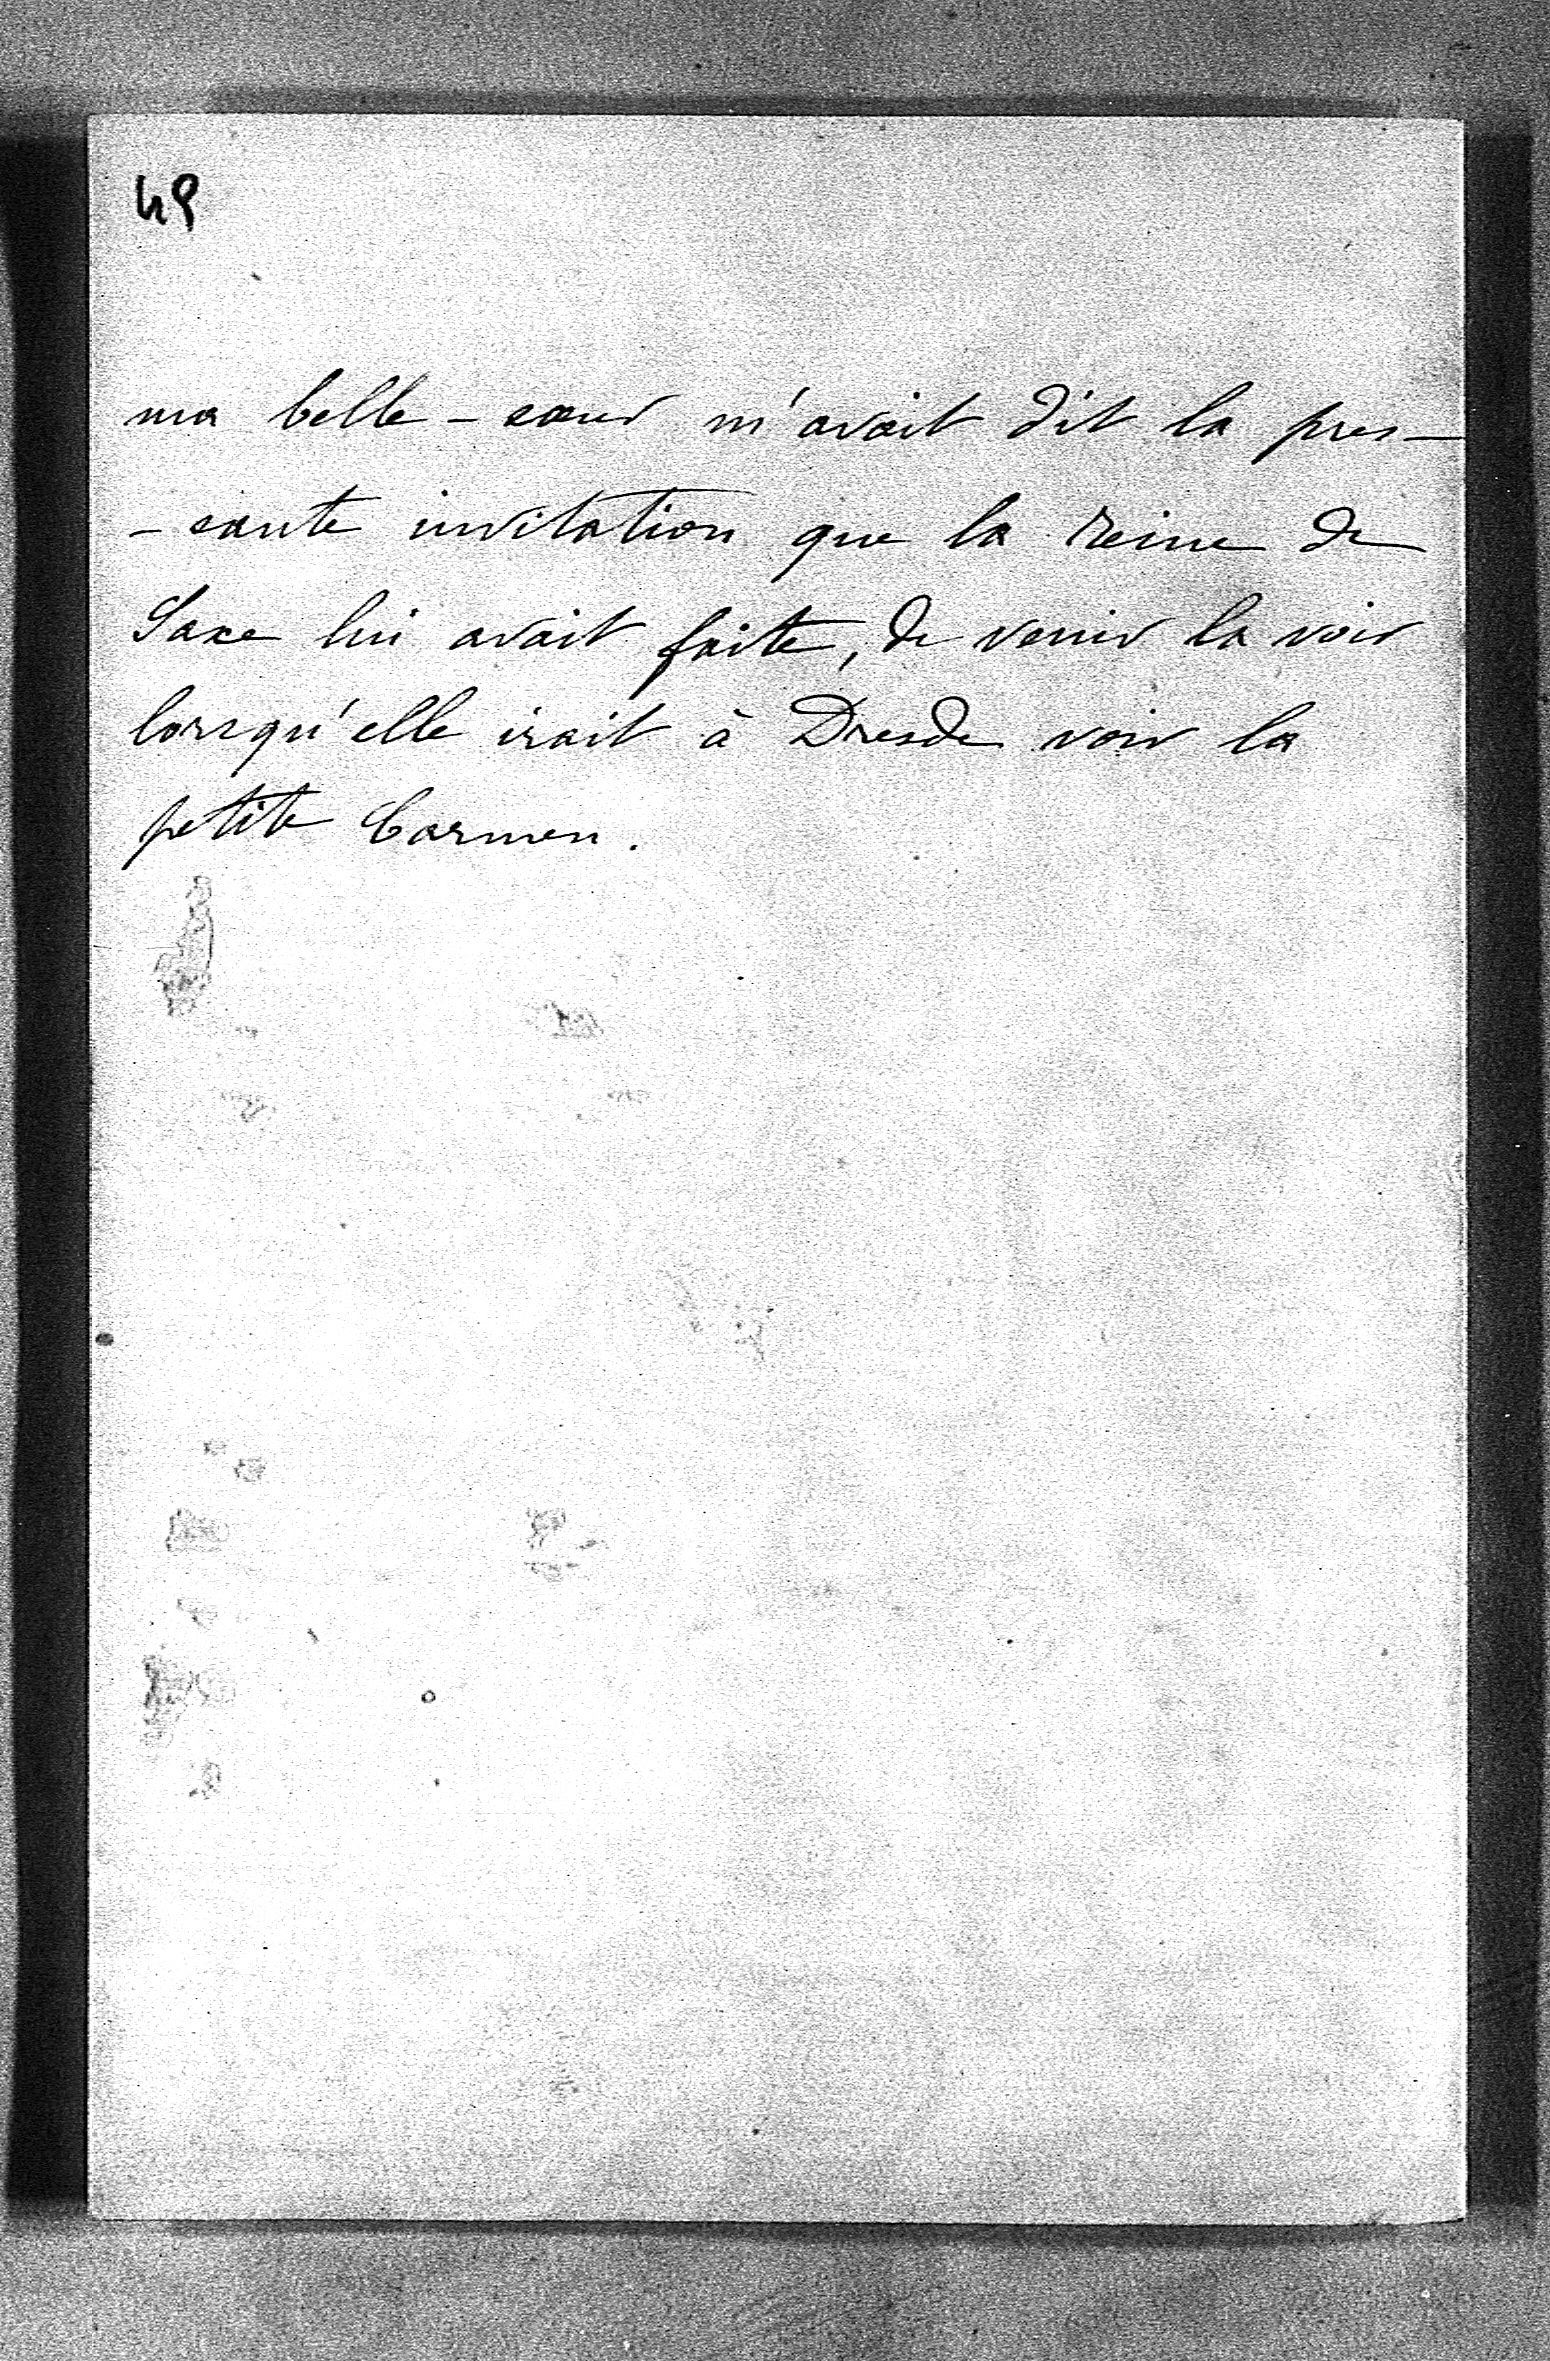 49
ma belle-sœur m'avait dit la pres-
-sante invitation que la reine de
Saxe lui avait faite, de venir la voir
lorsqu'elle irait à Dresde voir la
petite Carmen.